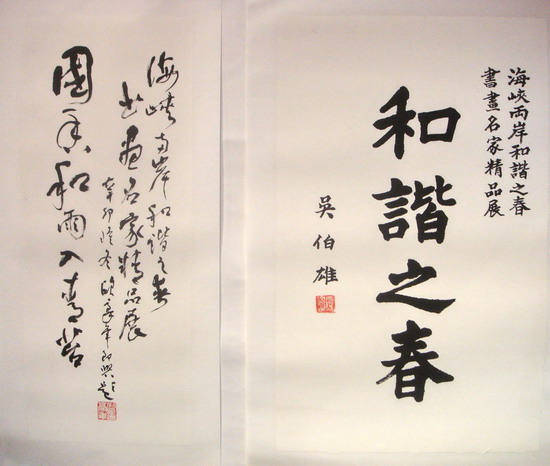 海峽兩岸和諧之春
書畫名家精品展
和諧之春
吳伯雄
海峽兩岸和諧之春
書畫名家精品展
辛卯隆冬歐豪年即興題
國香和雨入青苔